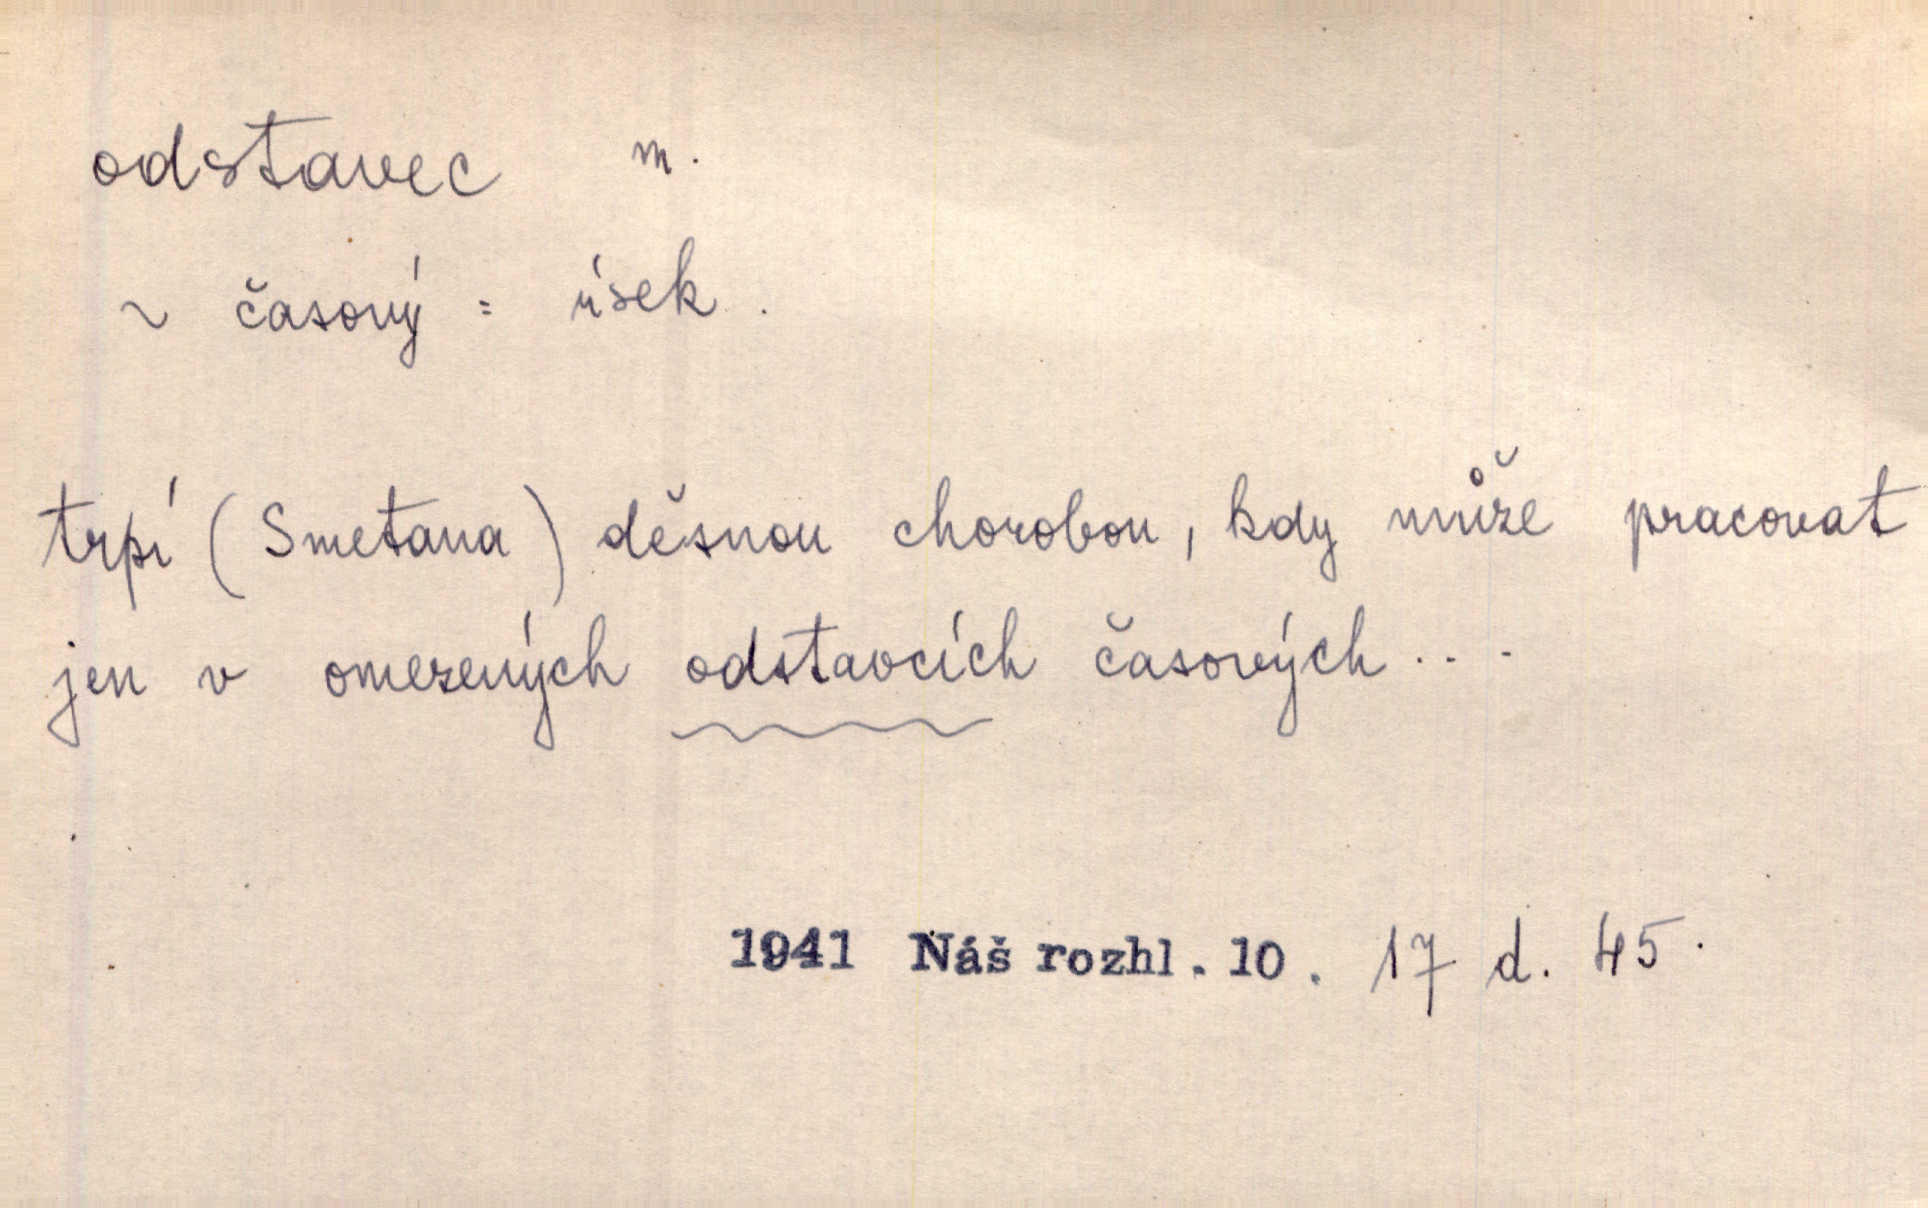 odstavec m.
~ časový = úsek.
trpí (Smetana) děsnou chorobou, kdy může pracovat
jen v omezených odstavcích časových...
1941 Náš rozhl. 10. 17 d. 45.